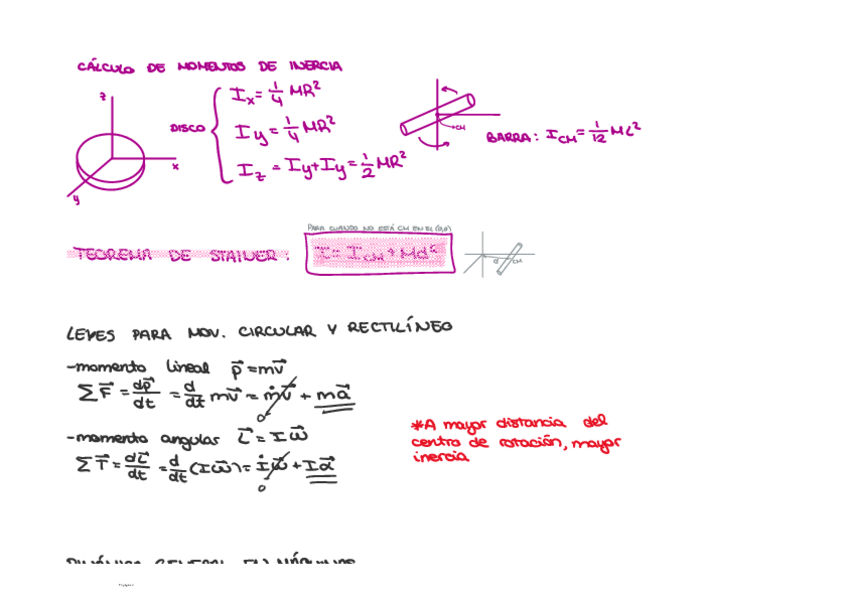 CÁLCULO DE MOMENTOS DE INERCIA
z
x
y
DISCO
Ix = 1/4 MR²
Iy = 1/4 MR²
Iz = Iy+Iy = 1/2 MR²
CM
BARRA: ICM = 1/12 ML²
PARA CUANDO NO ESTÁ CM EN EL (0,0)
TEOREMA DE STAINER: I = ICM + Md²
d CM
LEYES PARA MOV. CIRCULAR Y RECTILÍNEO
-momento lineal p⃗ = mv⃗
∑F⃗ = dp⃗/dt = d/dt mv⃗ = ṁv⃗ + ma⃗
0
-momento angular L⃗ = Iω⃗
∑T⃗ = dL⃗/dt = d/dt (Iω⃗) = İω⃗ + Iα⃗
0
*A mayor distancia del
centro de rotación, mayor
inercia
DINÁMICA GENERAL EN MÁQUINAS